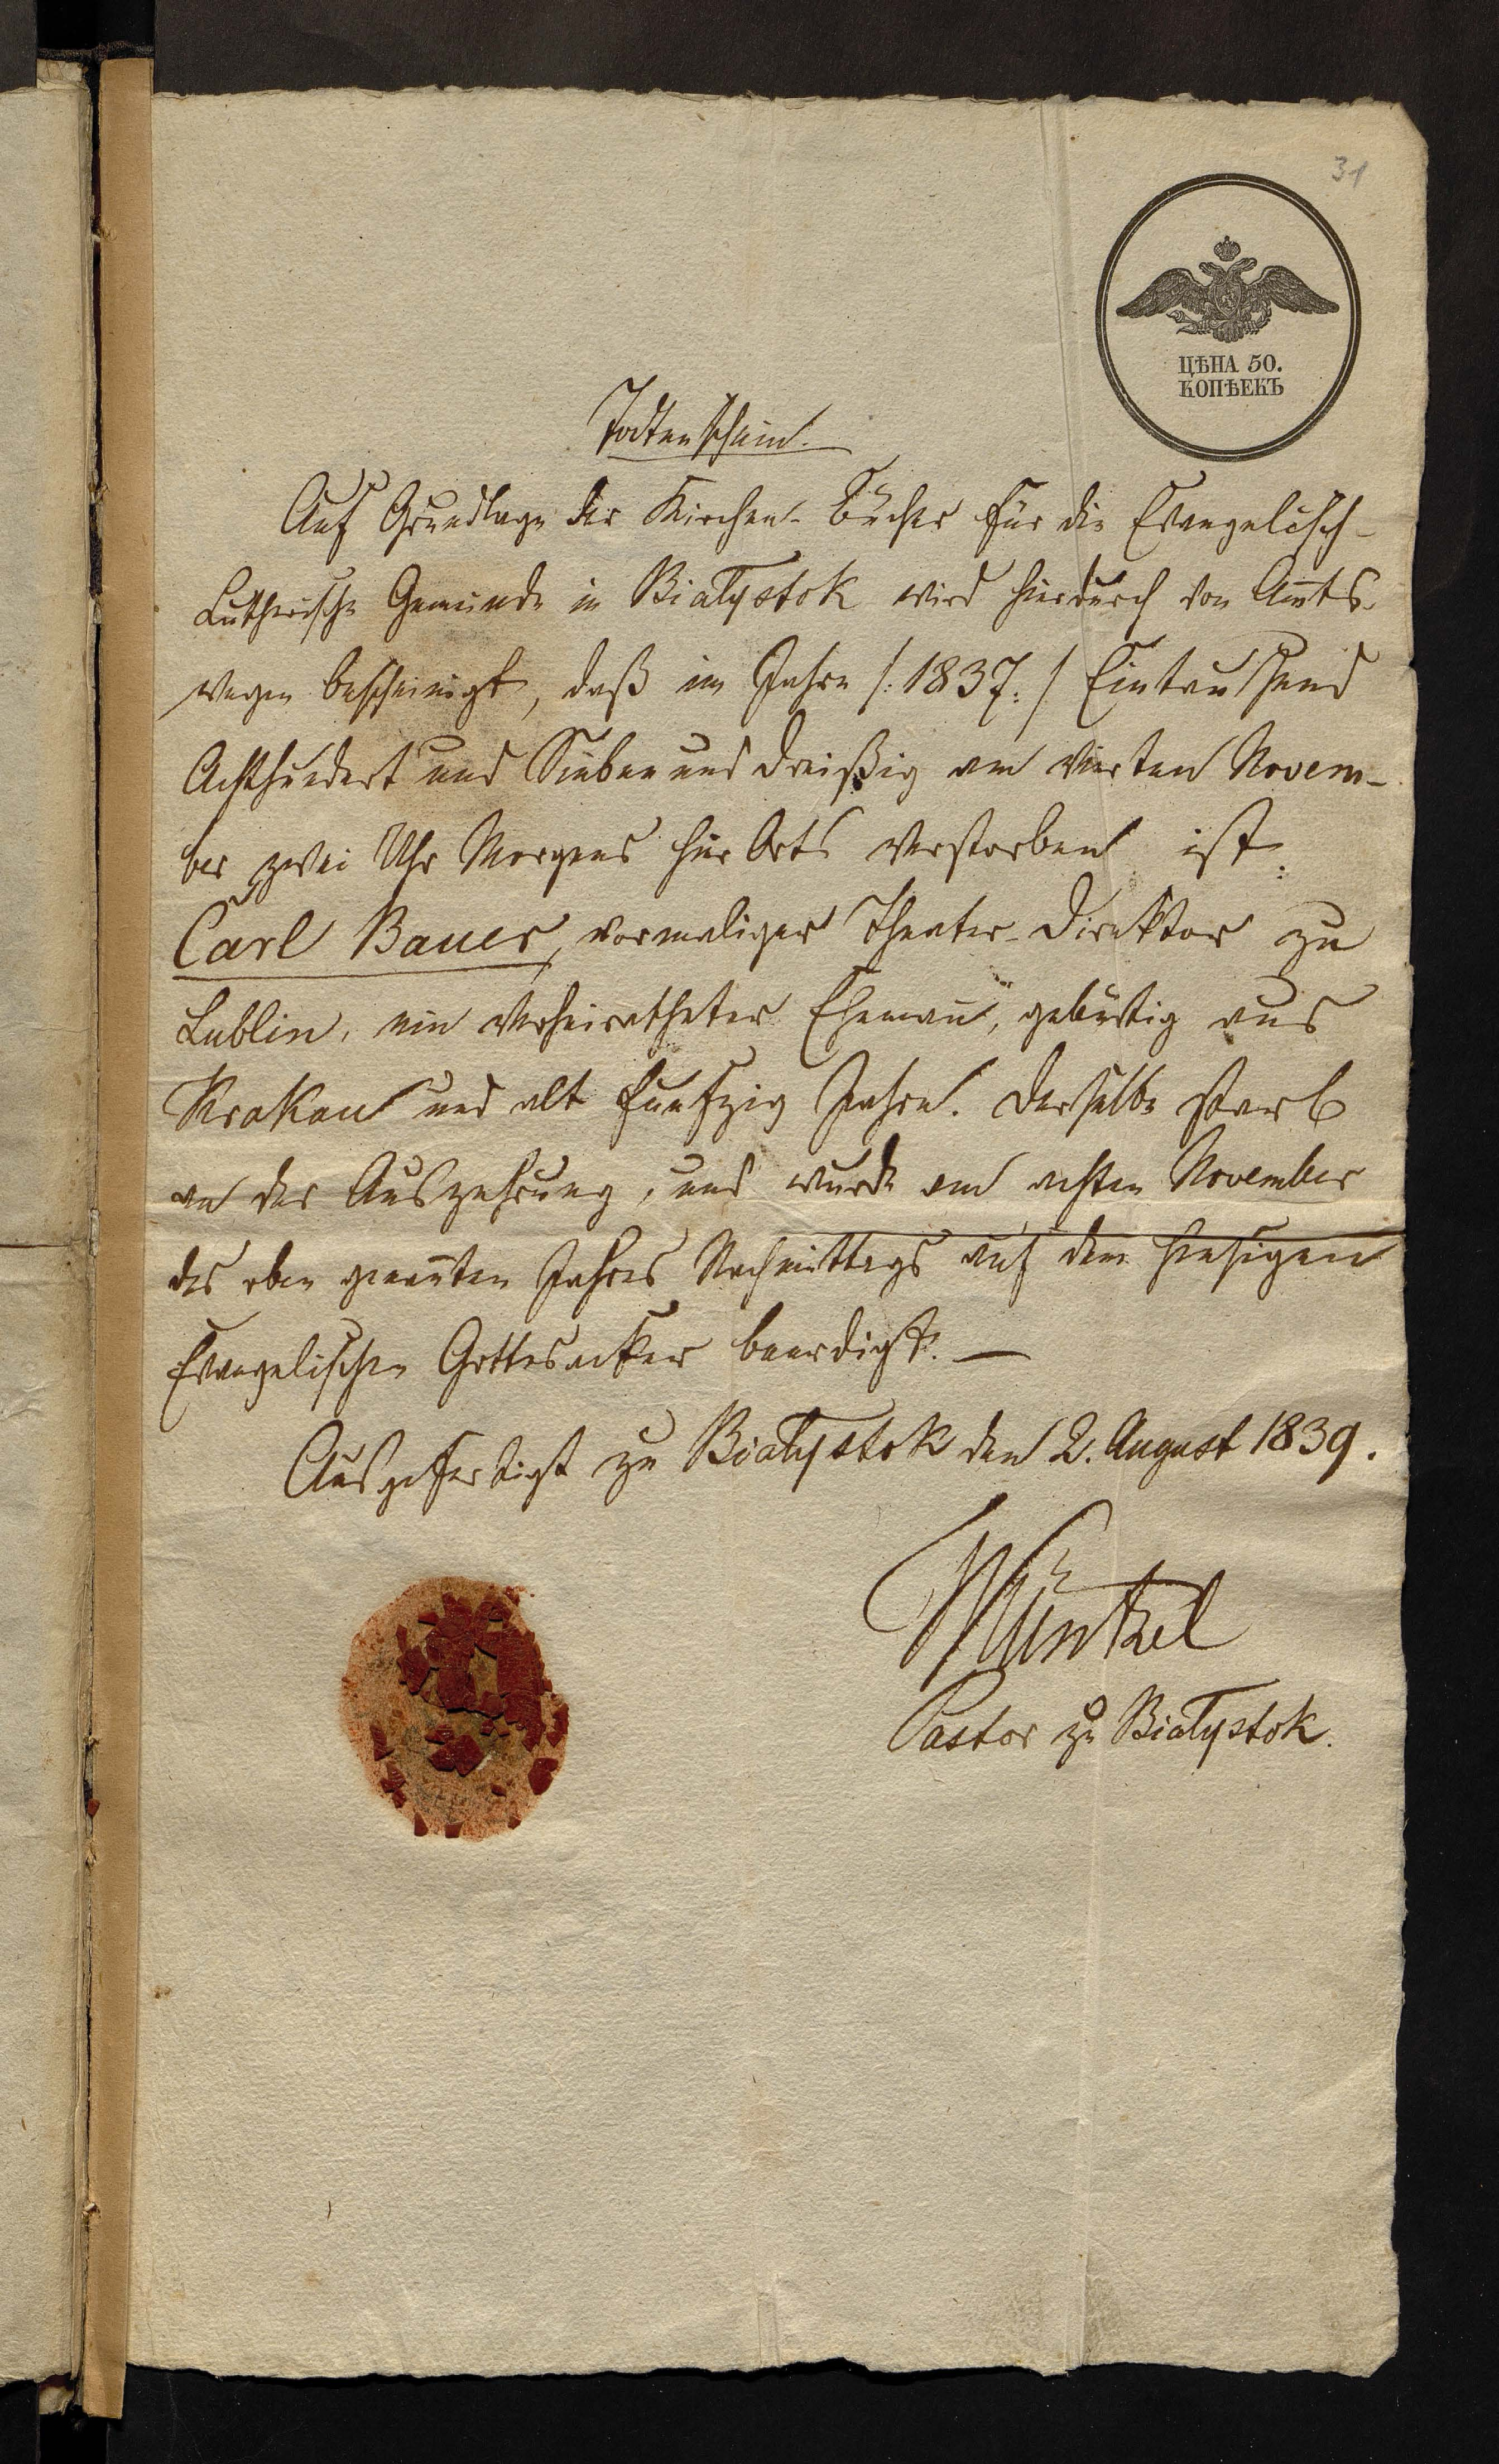 31
ЦѢНА 50.
КОПѢЕКЪ
Todtenschein.
Auf Grundlage der Kirchen-Bücher für die Evangelisch-
Lutherische Gemeinde in Białystok wird hierdurch von Amts-
wegen bescheinigt, daß im Jahre /:1837:/ Eintausend
Achthundert und Sieben und dreißig am vierten Novem-
ber zwei Uhr Morgens hier Orts verstorben ist:
Carl Bauer, vormaliger Theater-Direktor zu
Lublin, ein verheiratheter Ehemann̄, gebürtig aus
Krakau und alt funfzig Jahre. Derselbe starb
an der Auszehrung, und wurde am achten November
des oben genan̄ten Jahres Nachmittags auf dem hiesigen
Evangelischen Gottesacker beerdigt. —
Ausgefertigt zu Białystok den 2. August 1839.
Pastor zu Białystok.